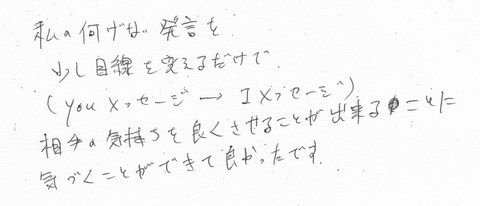 私の何げない発言を
少し目線を変えるだけで
(youメッセージ → Iメッセージ)
相手の気持ちを良くさせることが出来ることに
気づくことができて良かったです。